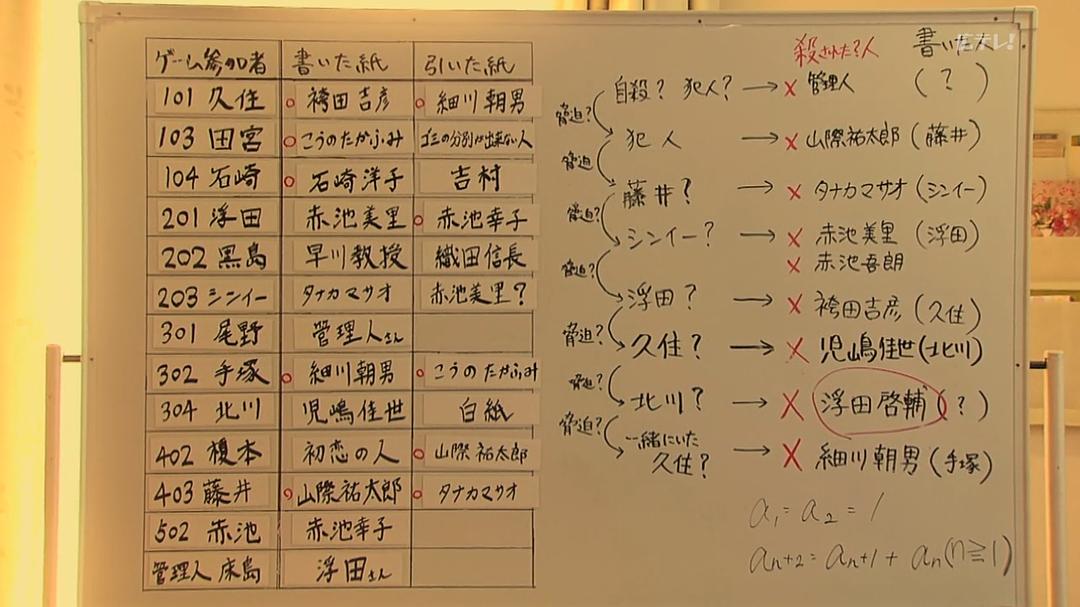 ゲーム参加者 書いた紙 引いた紙
101 久住 袴田吉彦 細川朝男
103 田宮 こうのたかふみ ゴミの分別が出来ない人
104 石崎 石崎洋子 吉村
201 浮田 赤池美里 赤池幸子
202 黒島 早川教授 織田信長
203 シンイー タナカマサオ 赤池美里?
301 尾野 管理人さん
302 手塚 細川朝男 こうのたかふみ
304 北川 児嶋佳世 白紙
402 榎本 初恋の人 山際祐太郎
403 藤井 山際祐太郎 タナカマサオ
502 赤池 赤池幸子
管理人 床島 浮田さん
殺された?人 書いた人
日テレ!
自殺? 犯人? → × 管理人 (?)
脅迫?
犯人 → × 山際祐太郎 (藤井)
脅迫
藤井? → × タナカマサオ (シンイー)
脅迫?
シンイー? → × 赤池美里 (浮田)
× 赤池吾朗
脅迫?
浮田? → × 袴田吉彦 (久住)
脅迫?
久住? → × 児嶋佳世 (北川)
脅迫?
北川? → × 浮田啓輔 (?)
脅迫?
一緒にいた
久住? → × 細川朝男 (手塚)
a₁=a₂=1
aₙ₊₂=aₙ₊₁+aₙ(n≧1)